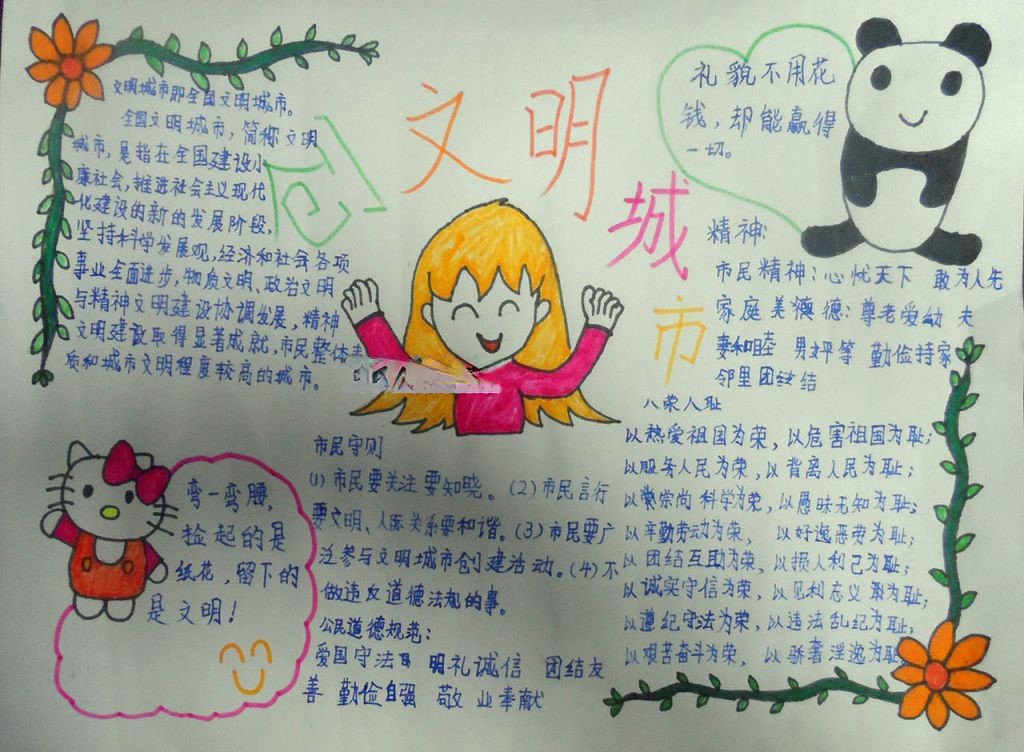 创文明城市
文明城市即全国文明城市。
全国文明城市，简称文明
城市，是指在全国建设小
康社会，推进社会主义现代
化建设的新的发展阶段，
坚持科学发展观，经济和社会各项
事业全面进步，物质文明、政治文明
与精神文明建设协调发展，精神
文明建设取得显著成就，市民整体素
质和城市文明程度较高的城市。
礼貌不用花
钱，却能赢得
一切。
精神：
市民精神：心忧天下 敢为人先
家庭美德：尊老爱幼 夫
妻和睦 男女平等 勤俭持家
邻里团结
八荣八耻
以热爱祖国为荣，以危害祖国为耻；
以服务人民为荣，以背离人民为耻；
以崇尚科学为荣，以愚昧无知为耻；
以辛勤劳动为荣， 以好逸恶劳为耻；
以团结互助为荣，以损人利己为耻；
以诚实守信为荣，以见利忘义为耻；
以遵纪守法为荣，以违法乱纪为耻；
以艰苦奋斗为荣， 以骄奢淫逸为耻
弯一弯腰，
捡起的是
纸花，留下的
是文明！
市民守则
(1)市民要关注要知晓。(2)市民言行
要文明、人际关系要和谐。(3)市民要广
泛参与文明城市创建活动。(4)不
做违反道德法规的事。
公民道德规范：
爱国守法 明礼诚信 团结友
善 勤俭自强 敬业奉献